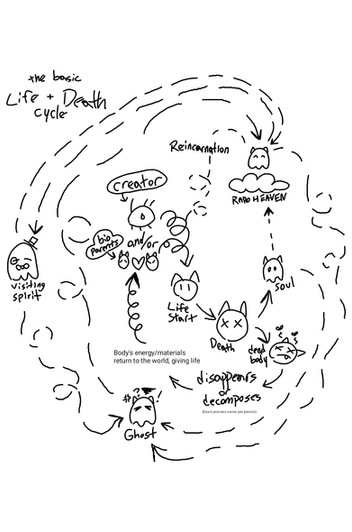 the basic
Life + Death
cycle
Reincarnation
creator
RNBO HEAVEN
bio
parents
and/or
visiting
spirit
Life
start
Soul
Death
dead
body
Body's energy/materials
return to the world, giving life
disappears
or
decomposes
(Exact process varies per person)
#?
Ghost